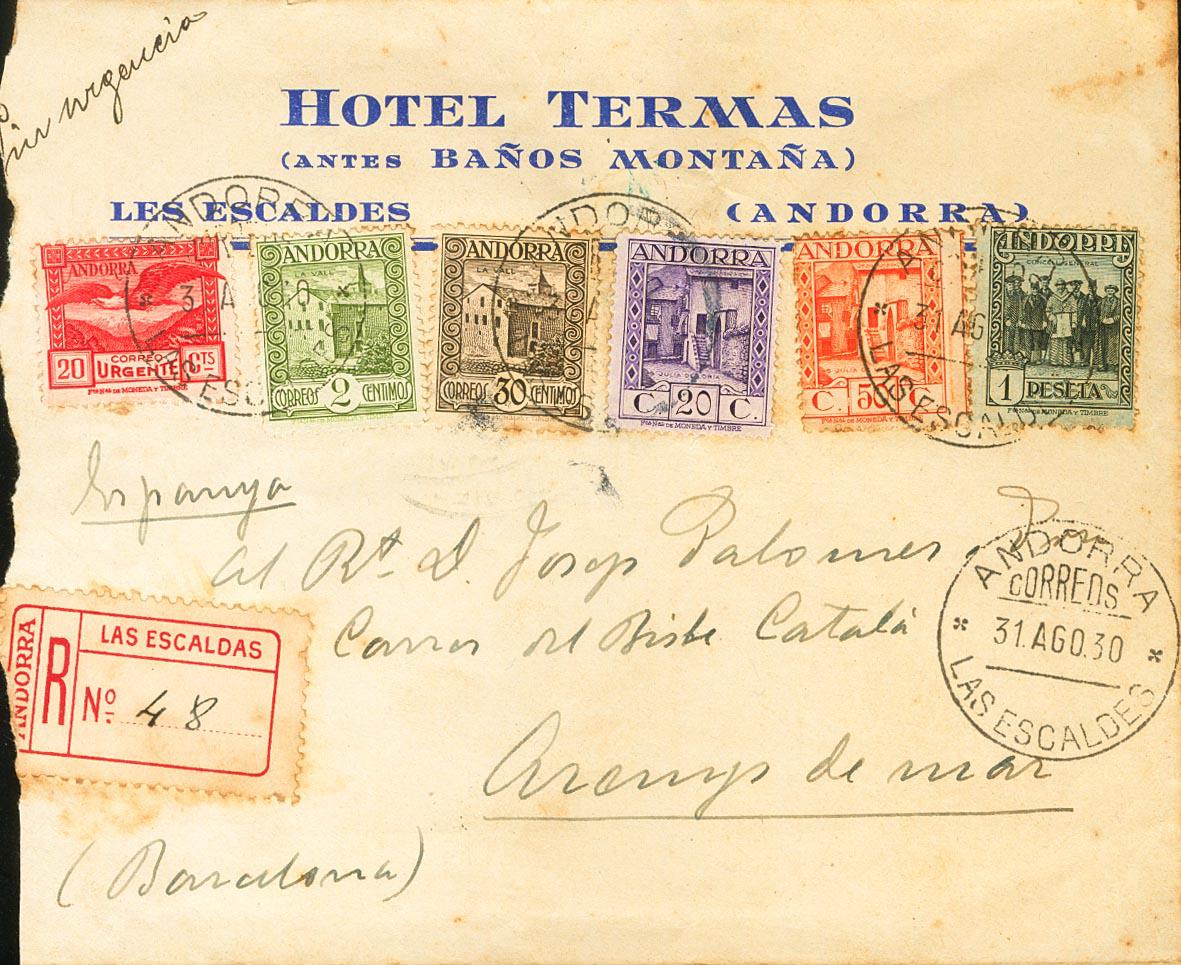 Sin urgencia
HOTEL TERMAS
(ANTES BAÑOS MONTAÑA)
LES ESCALDES (ANDORRA)
ANDORRA
20 CORREO URGENTE CTS
Fca Nal DE MONEDA Y TIMBRE
ANDORRA
LA VALL
CORREOS 2 CENTIMOS
ANDORRA
LA VALL
CORREOS 30 CENTIMOS
ANDORRA
C. 20 C.
Fca Nal DE MONEDA Y TIMBRE
ANDORRA
C. 50 C.
ANDORRA
CONCELL GENERAL
1 PESETA
Fca Nal DE MONEDA Y TIMBRE
ANDORRA
LAS ESCALDES
ANDORRA
ANDORRA
31 AGO
LAS ESCALDES
Espanya
al Rt. D. Josep Palomer,
Carrer del Bisbe Català
Arenys de mar
(Barcelona)
ANDORRA
CORREOS
31.AGO.30
LAS ESCALDES
ANDORRA
R
LAS ESCALDAS
Nº 48